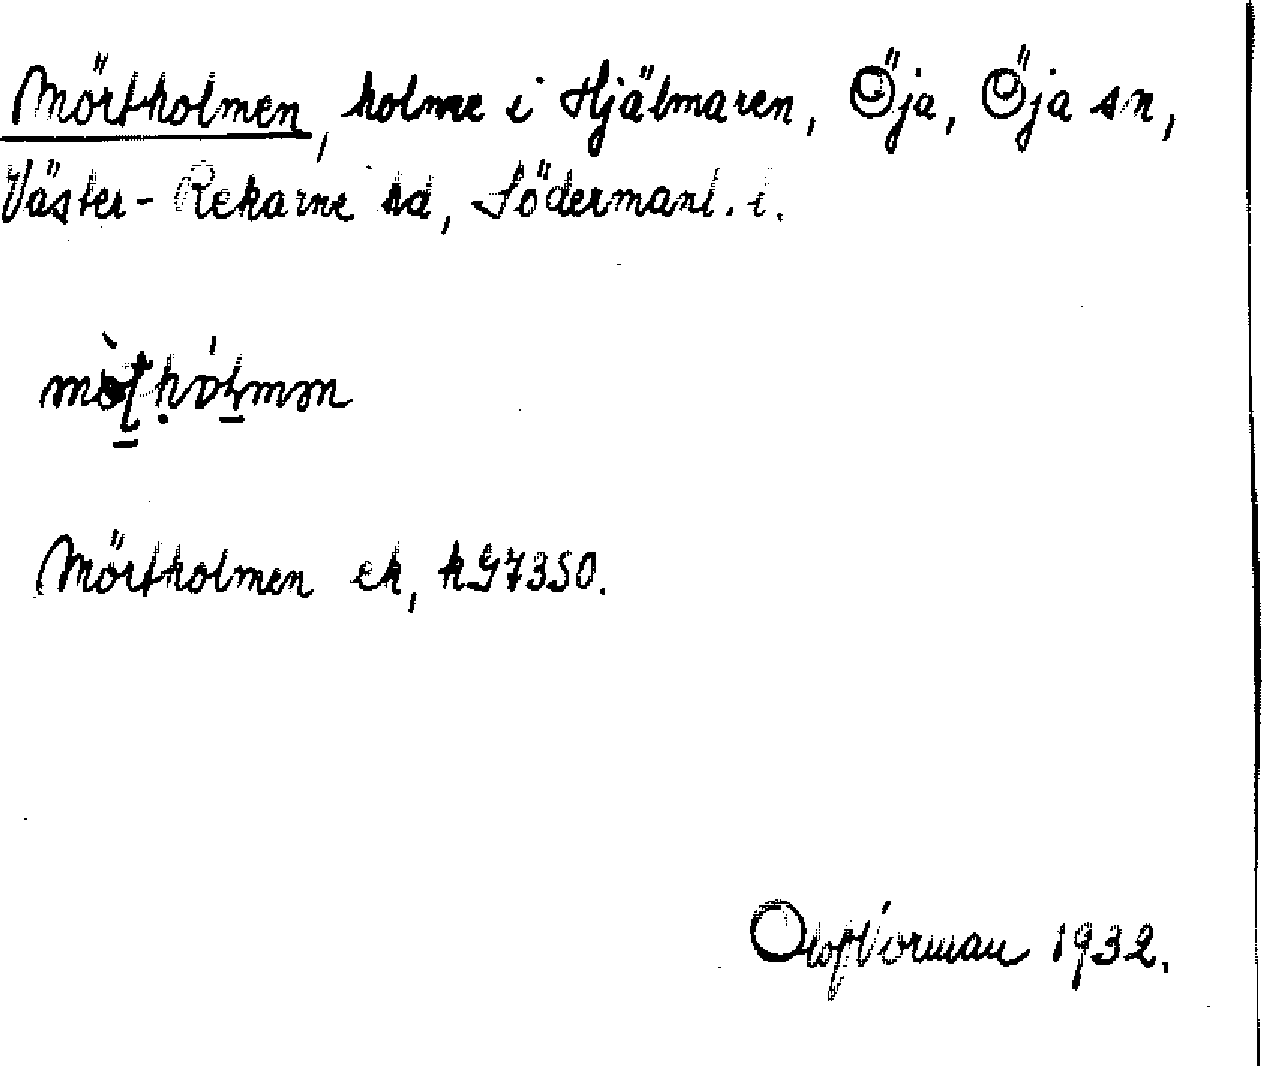 Mörtholmen, holme i Hjälmaren, Öja, Öja sn,
Väster-Rekarne hd, Södermanl. l.
Mörtholmen ek, k97350.
Olof Vorman 1932.